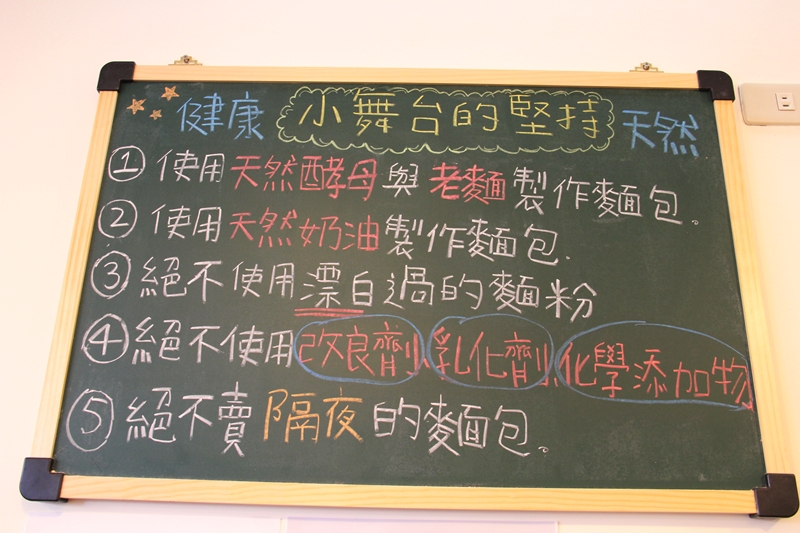 健康 小舞台的堅持 天然
① 使用天然酵母與老麵製作麵包。
② 使用天然奶油製作麵包.
③ 絕不使用漂白過的麵粉
④ 絕不使用改良劑、乳化劑、化學添加物
⑤ 絕不賣隔夜的麵包。